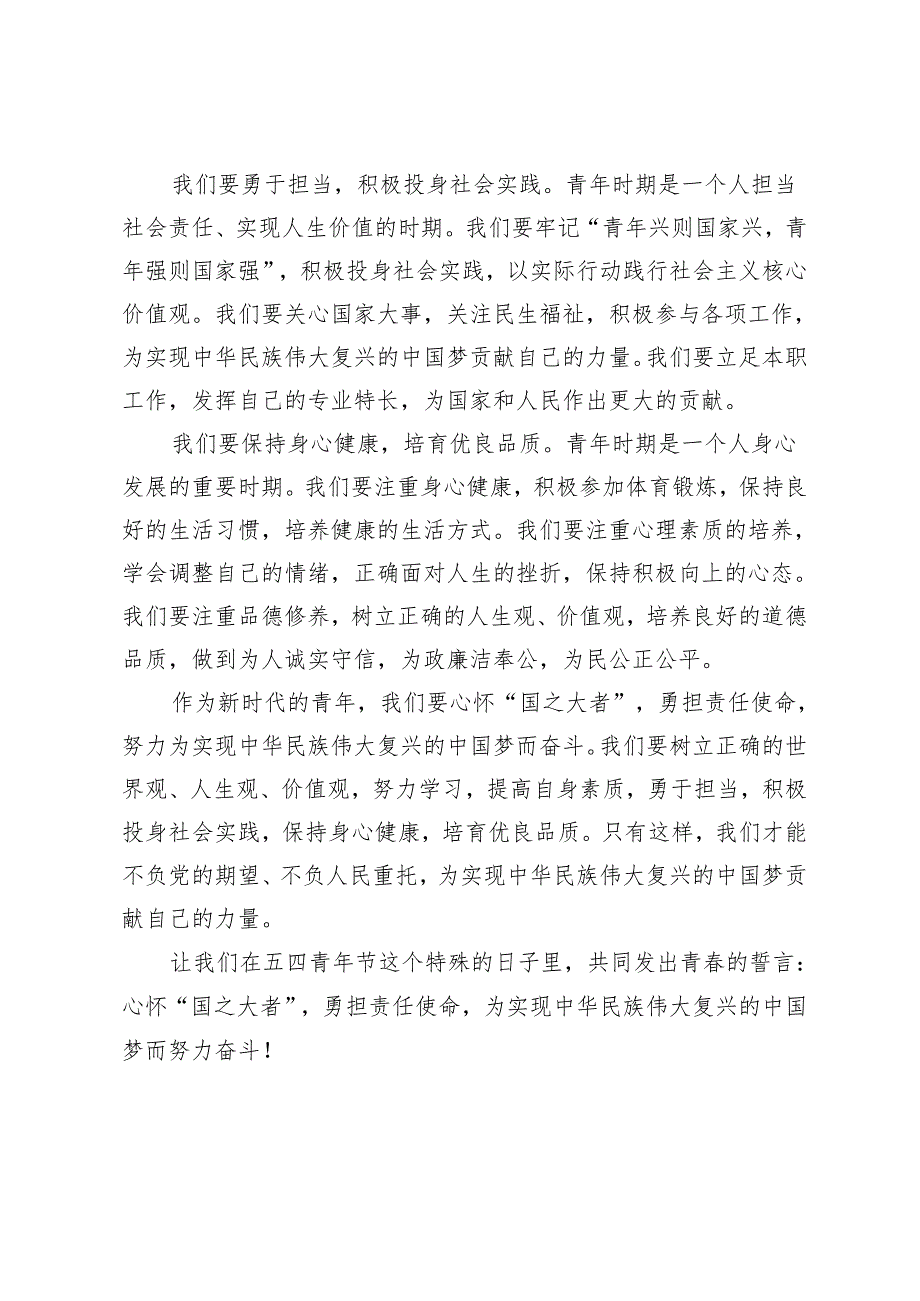 我们要勇于担当，积极投身社会实践。青年时期是一个人担当
社会责任、实现人生价值的时期。我们要牢记“青年兴则国家兴，青
年强则国家强”，积极投身社会实践，以实际行动践行社会主义核心
价值观。我们要关心国家大事，关注民生福祉，积极参与各项工作，
为实现中华民族伟大复兴的中国梦贡献自己的力量。我们要立足本职
工作，发挥自己的专业特长，为国家和人民作出更大的贡献。
我们要保持身心健康，培育优良品质。青年时期是一个人身心
发展的重要时期。我们要注重身心健康，积极参加体育锻炼，保持良
好的生活习惯，培养健康的生活方式。我们要注重心理素质的培养，
学会调整自己的情绪，正确面对人生的挫折，保持积极向上的心态。
我们要注重品德修养，树立正确的人生观、价值观，培养良好的道德
品质，做到为人诚实守信，为政廉洁奉公，为民公正公平。
作为新时代的青年，我们要心怀“国之大者”，勇担责任使命，
努力为实现中华民族伟大复兴的中国梦而奋斗。我们要树立正确的世
界观、人生观、价值观，努力学习，提高自身素质，勇于担当，积极
投身社会实践，保持身心健康，培育优良品质。只有这样，我们才能
不负党的期望、不负人民重托，为实现中华民族伟大复兴的中国梦贡
献自己的力量。
让我们在五四青年节这个特殊的日子里，共同发出青春的誓言：
心怀“国之大者”，勇担责任使命，为实现中华民族伟大复兴的中国
梦而努力奋斗！